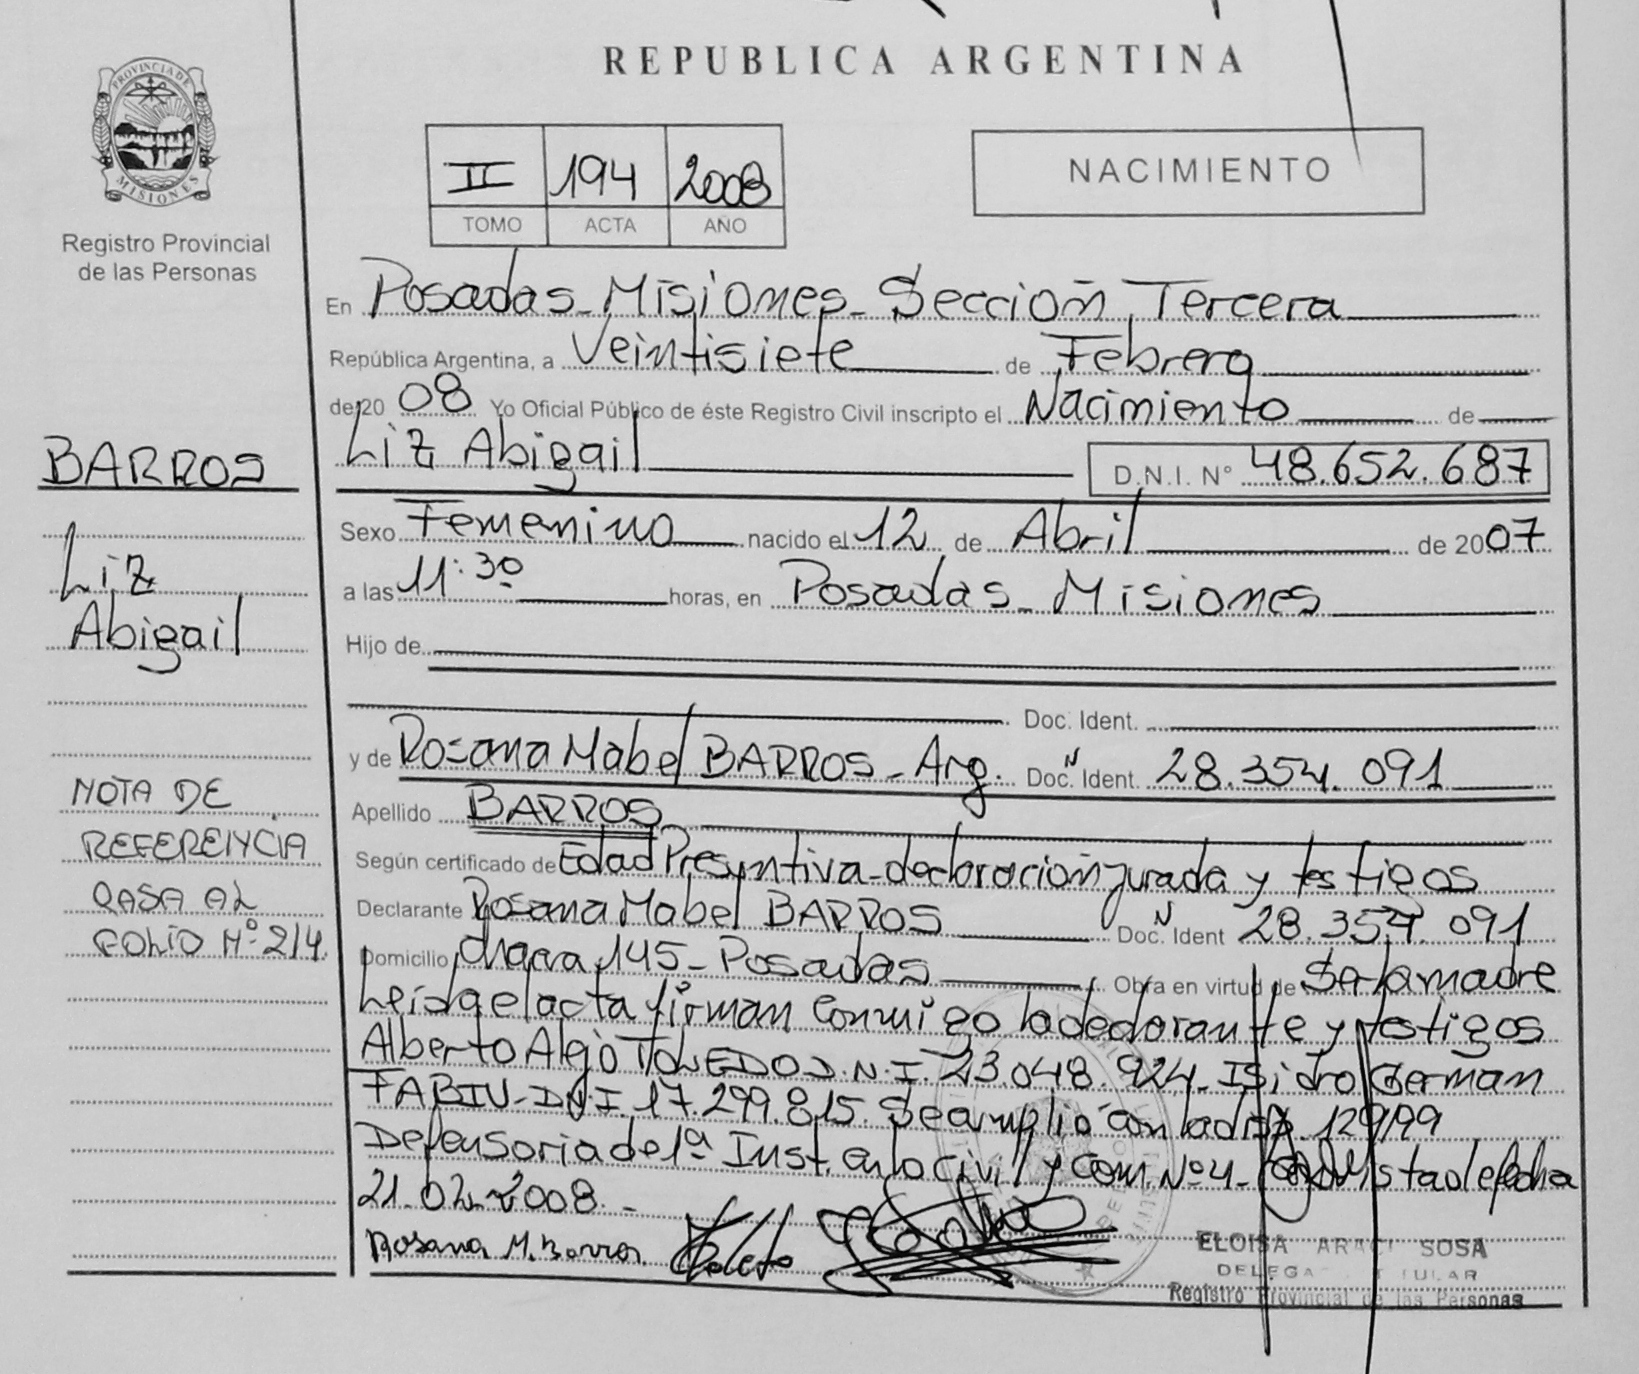 REPUBLICA ARGENTINA
PROVINCIA DE MISIONES
Registro Provincial
de las Personas
II 194 2008
TOMO ACTA AÑO
NACIMIENTO
En Posadas - Misiones - Sección Tercera
República Argentina, a Veintisiete de Febrero
de 20 08 Yo Oficial Público de éste Registro Civil inscripto el Nacimiento de
Liz Abigail D.N.I. N° 48.652.687
Sexo Femenino nacido el 12 de Abril de 2007
a las 11:30 horas, en Posadas - Misiones
Hijo de
Doc. Ident.
y de Rosana Mabel BARROS - Arg. Doc. Ident. N 28.354.091
Apellido BARROS
Según certificado de Edad Presuntiva - declaracion jurada y testigos
Declarante Rosana Mabel BARROS Doc. Ident N 28.354.091
Domicilio Chacra 145 - Posadas Obra en virtud de Ser la madre
Leida el acta firman Conmigo la declarante y testigos
Alberto Alejo TOLEDO D.N.I. 23.048.924 - Isidro German
FABIU - DNI. 17.299.815. Se amplió con la disp. 129/99
Defensoria de 1ª Inst. en lo Civil y Com. Nº 4 - vista de fecha
21.02.2008 -
Rosana M. Barros
ELOISA ARACI SOSA
DELEGADA TITULAR
Registro Provincial de las Personas
BARROS
Liz
Abigail
NOTA DE
REFERENCIA
PASA AL
FOLIO Nº 214.